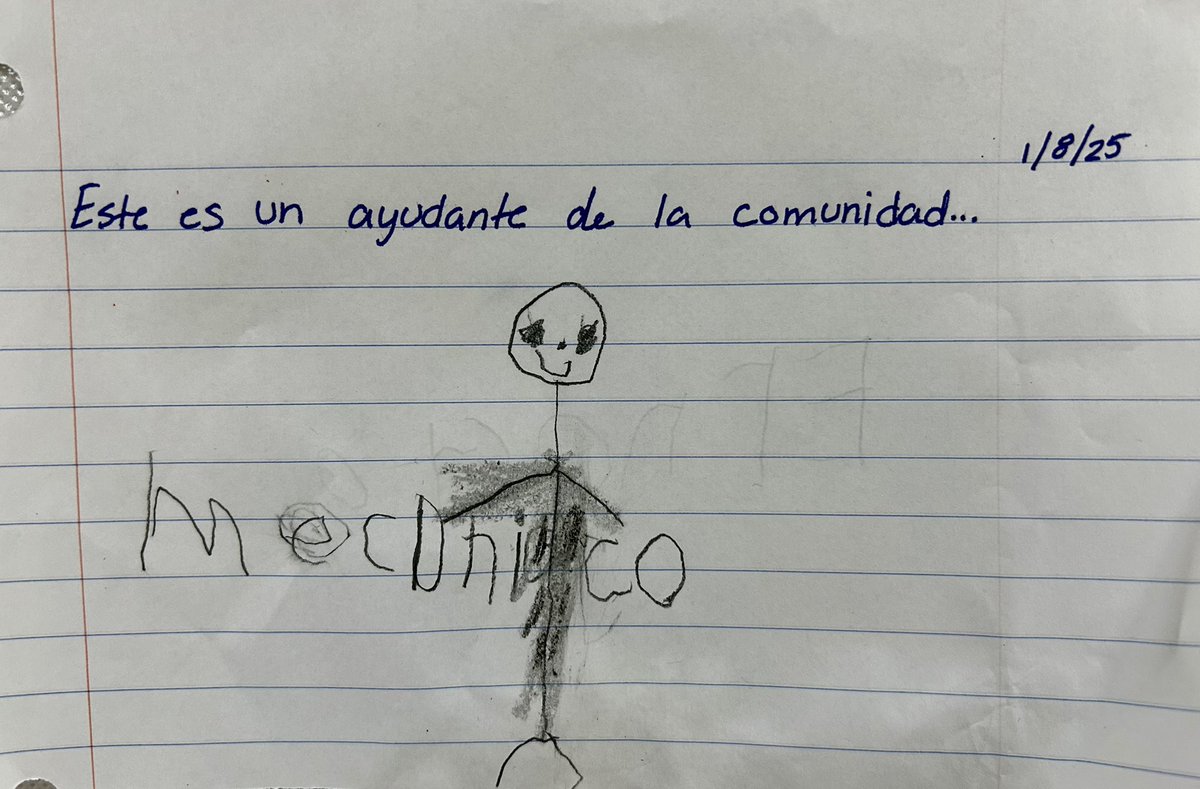 1/8/25
Este es un ayudante de la comunidad...
Mecanico